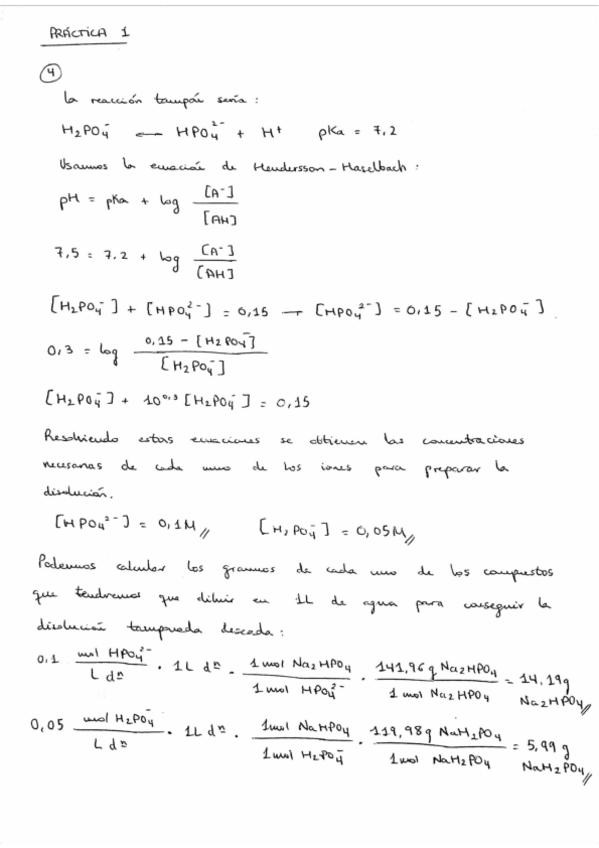 PRÁCTICA 1
4
La reacción tampón sería:
H₂PO₄⁻ ← HPO₄²⁻ + H⁺ pKa = 7,2
Usamos la ecuación de Hendersson-Haselbach:
pH = pKa + log [A⁻] / [AH]
7,5 = 7,2 + log [A⁻] / [AH]
[H₂PO₄⁻] + [HPO₄²⁻] = 0,15 → [HPO₄²⁻] = 0,15 - [H₂PO₄⁻]
0,3 = log 0,15 - [H₂PO₄⁻] / [H₂PO₄⁻]
[H₂PO₄⁻] + 10^0,3 [H₂PO₄⁻] = 0,15
Resolviendo estas ecuaciones se obtienen las concentraciones
necesarias de cada uno de los iones para preparar la
disolución.
[HPO₄²⁻] = 0,1M // [H₂PO₄⁻] = 0,05M //
Podemos calcular los gramos de cada uno de los compuestos
que tendremos que diluir en 1L de agua para conseguir la
disolución tamponada deseada:
0,1 mol HPO₄²⁻ / L dⁿ · 1L dⁿ · 1 mol Na₂HPO₄ / 1 mol HPO₄²⁻ · 141,96 g Na₂HPO₄ / 1 mol Na₂HPO₄ = 14,19g Na₂HPO₄ //
0,05 mol H₂PO₄⁻ / L dⁿ · 1L dⁿ · 1mol NaHPO₄ / 1 mol H₂PO₄⁻ · 119,98g NaH₂PO₄ / 1mol NaH₂PO₄ = 5,99 g NaH₂PO₄ //